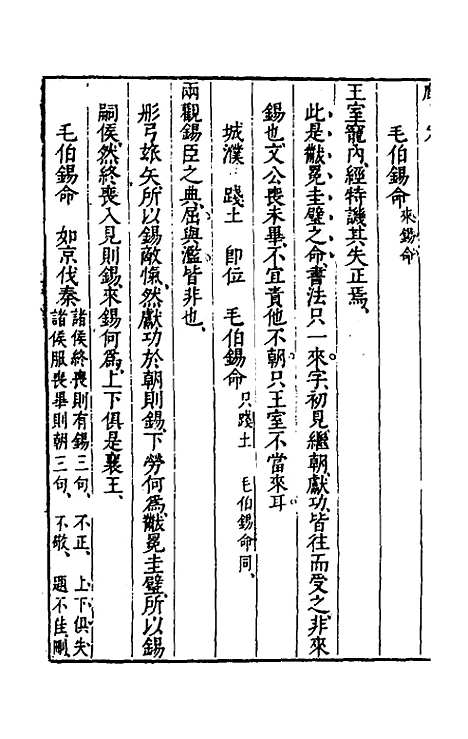 毛伯錫命 來錫命
王室寵內、經特譏其失正焉、
此是黻冕圭璧之命、書法只一來字、初見繼朝、獻功、皆往而受之、非來
錫也、文公喪未畢、不宜責他不朝、只王室不當來耳
城濮 踐土 卽位 毛伯錫命 只踐土 毛伯錫命同、
兩觀錫臣之典、屈與濫皆非也、
彤弓玈矢、所以錫敵愾、然獻功於朝則錫、下勞何為、黻冕圭璧、所以錫
嗣侯、然終喪入見則錫、來錫何為、上下俱是襄王、
毛伯錫命 如京伐秦 諸侯終喪則有錫三句、不正、上下俱失
諸侯服喪畢則朝三句、不敬、題不佳刪